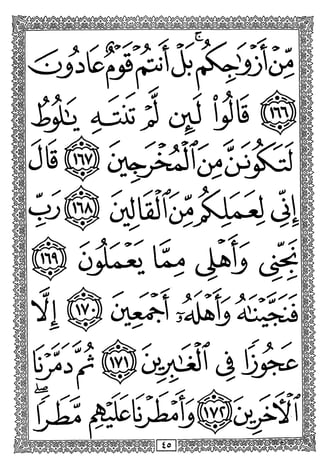 مِّنْ أَزْوَٰجِكُم ۚ بَلْ أَنتُمْ قَوْمٌ عَادُونَ
﴿١٦٦﴾ قَالُوا۟ لَئِن لَّمْ تَنتَهِ يَٰلُوطُ
لَتَكُونَنَّ مِنَ ٱلْمُخْرَجِينَ ﴿١٦٧﴾ قَالَ
إِنِّى لِعَمَلِكُم مِّنَ ٱلْقَالِينَ ﴿١٦٨﴾ رَبِّ
نَجِّنِى وَأَهْلِى مِمَّا يَعْمَلُونَ ﴿١٦٩﴾
فَنَجَّيْنَٰهُ وَأَهْلَهُۥٓ أَجْمَعِينَ ﴿١٧٠﴾ إِلَّا
عَجُوزًا فِى ٱلْغَٰبِرِينَ ﴿١٧١﴾ ثُمَّ دَمَّرْنَا
ٱلْءَاخَرِينَ ﴿١٧٢﴾ وَأَمْطَرْنَا عَلَيْهِم مَّطَرًا ۖ
٤٥